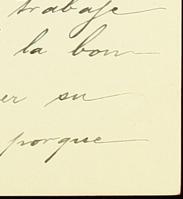 trabaje
la bon-
er su
porque